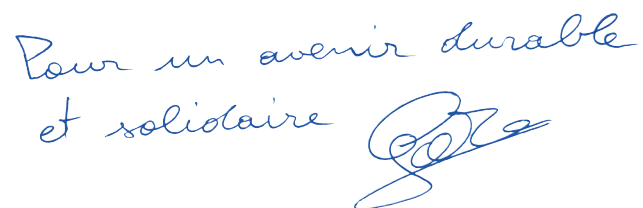 Pour un avenir durable
et solidaire